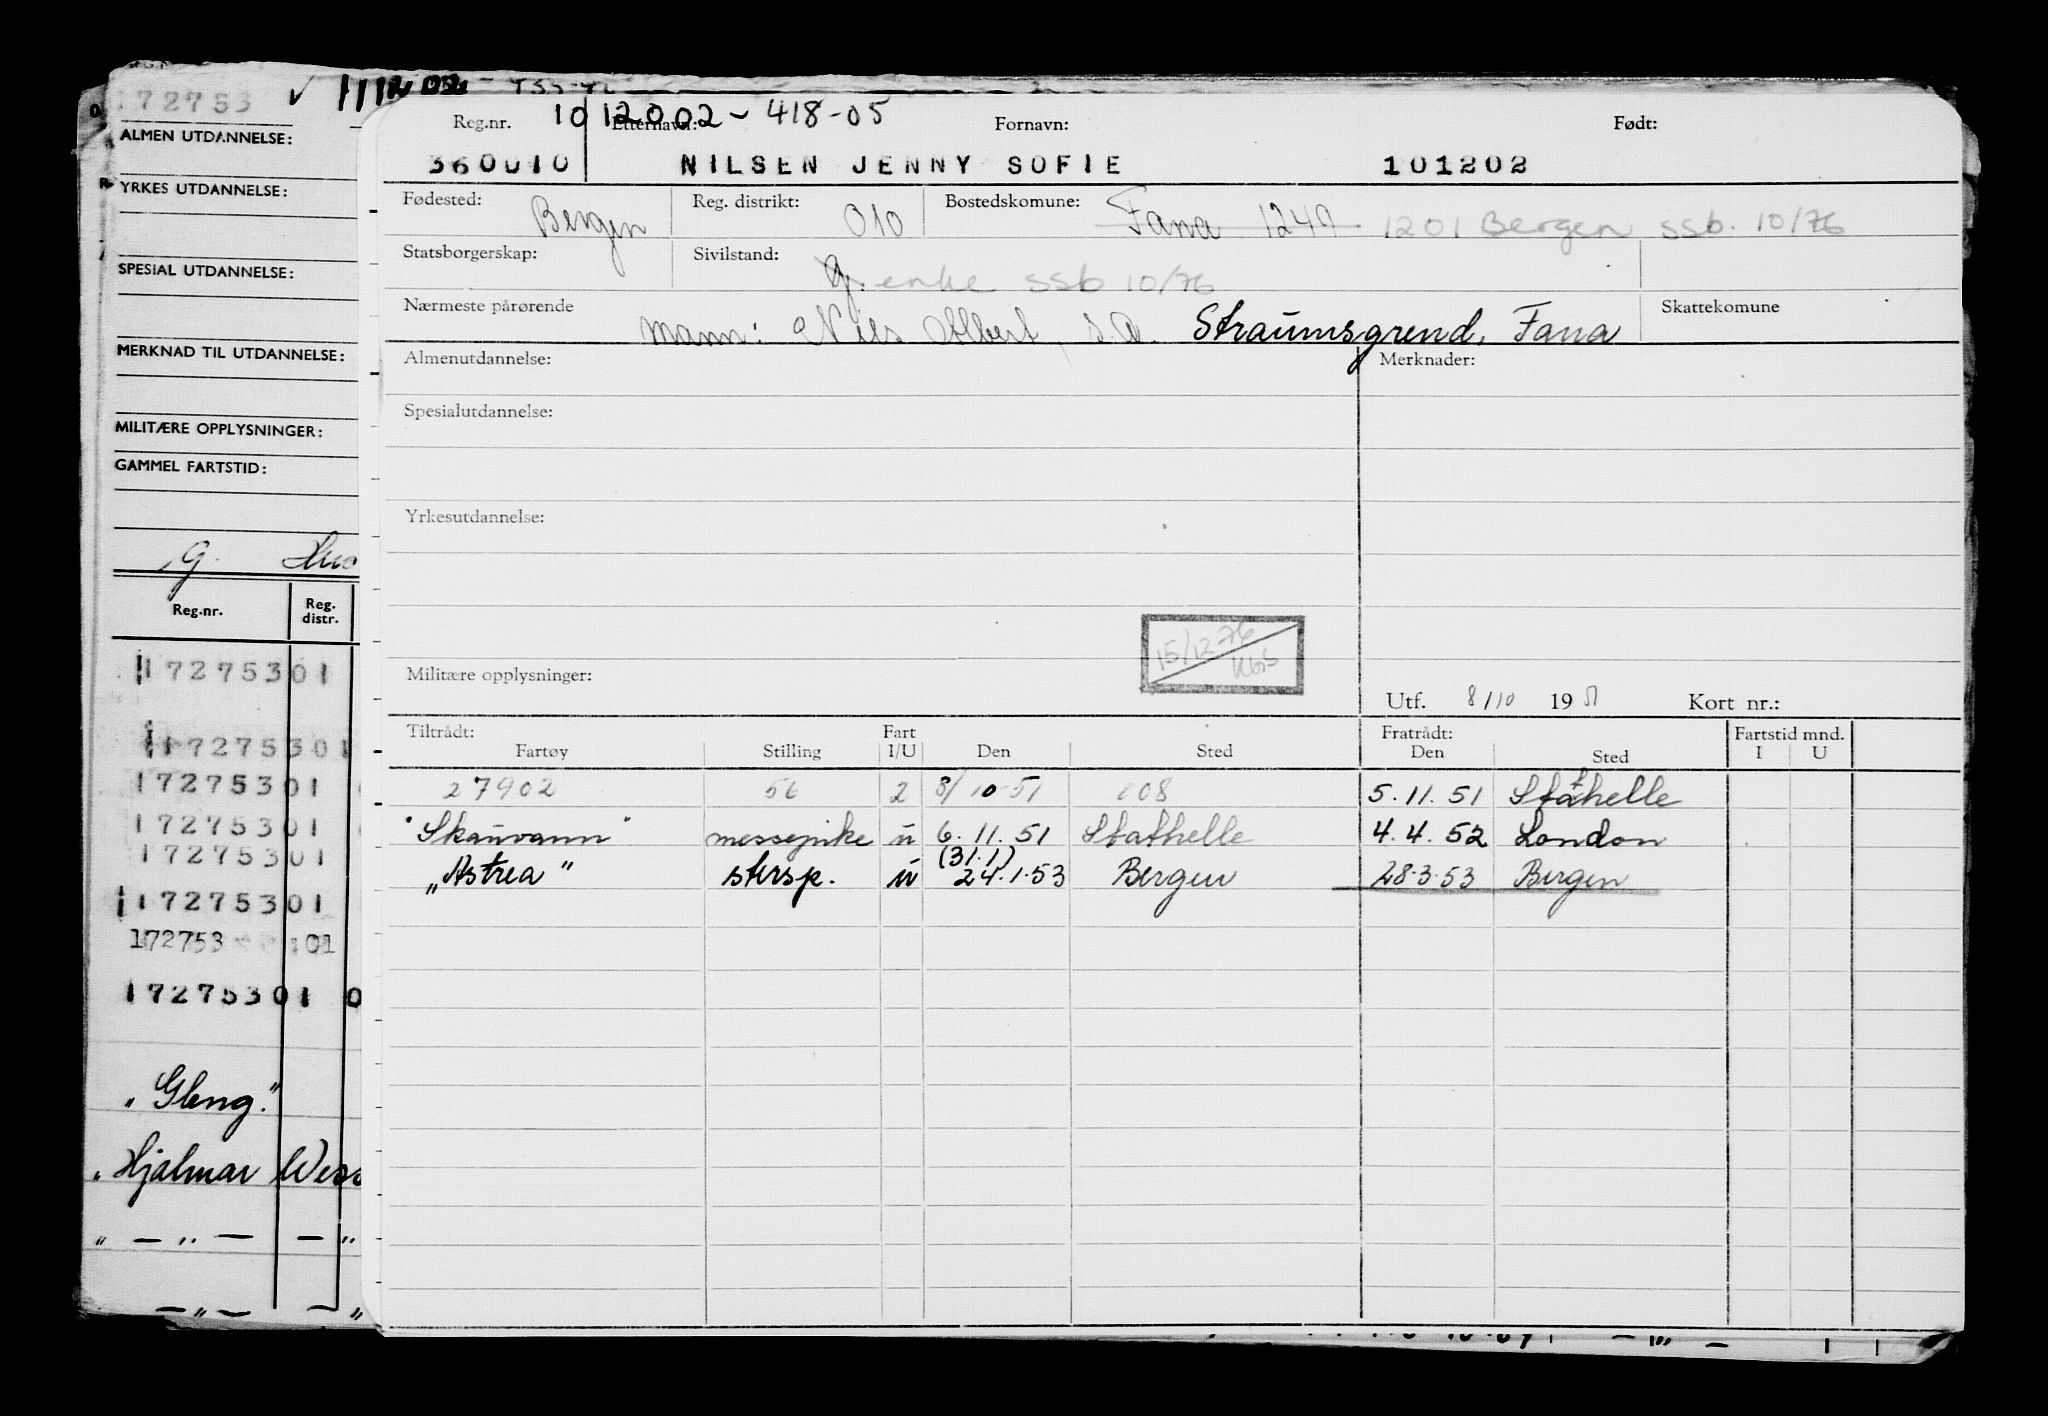 172753 ✓
ALMEN UTDANNELSE:
YRKES UTDANNELSE:
SPESIAL UTDANNELSE:
MERKNAD TIL UTDANNELSE:
MILITÆRE OPPLYSNINGER:
GAMMEL FARTSTID:
G.
Reg.nr. Reg. distr.
172753 01
172753 01
172753 01
172753 01
172753 01
172753 01
172753 01
172753 01 0
"Gleng."
"Hjalmar Wess
" — " — — "
— " — — "
101202 - 418-05
Reg.nr. Etternavn: Fornavn: Født:
360010 NILSEN JENNY SOFIE 101202
Fødested: Bergen Reg. distrikt: 010 Bostedskomune: Fana 1249 1201 Bergen ssb. 10/76
Statsborgerskap: Sivilstand: g. enke ssb 10/76
Nærmeste pårørende Mann: Nils Albert, s.a. Straumsgrend, Fana Skattekomune
Almenutdannelse: Merknader:
Spesialutdannelse:
Yrkesutdannelse:
15/12-76
Militære opplysninger:
Utf. 8/10 1951 Kort nr.:
Tiltrådt: Fart Fratrådt: Fartstid mnd.
Fartøy Stilling I/U Den Sted Den Sted I U
27902 56 2 8/10-51 808 5.11.51 Stathelle
"Skauvann" messepike u 6.11.51 Stathelle 4.4.52 London
(31.1)
"Astrea" stersp. u 24.1.53 Bergen 28.3.53 Bergen